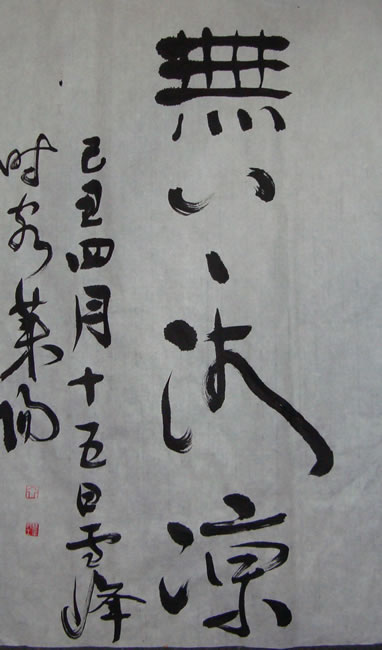 無心冰凉
己丑四月十五日雪峰
时客莱阳